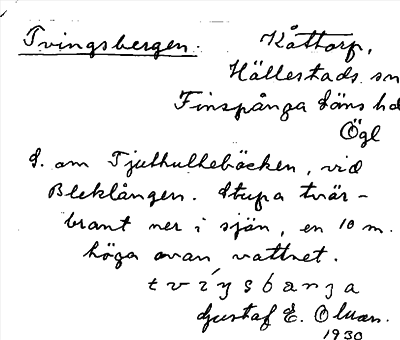 Tvingsbergen. Kåttorp,
Hällestads sn
Finspånga läns hd
Ögl
S. om Tjuthultebäcken, vid
Bleklången. Stupa tvär-
brant ner i sjön, en 10 m.
höga ovan vattnet.
Gustaf E. Olsson.
1930